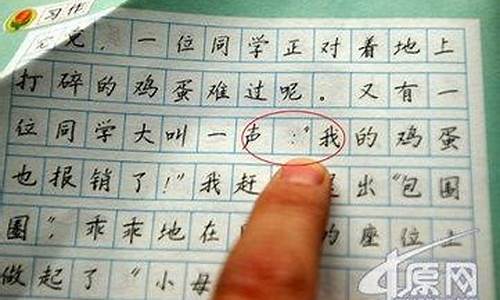 习作
竟，一位同学正对着地上
打碎的鸡蛋难过呢。又有一
位同学大叫一声："我的鸡蛋
也报销了！"我赶出"包围
圈"，乖乖地在的座位上
做起了"小母
中原网